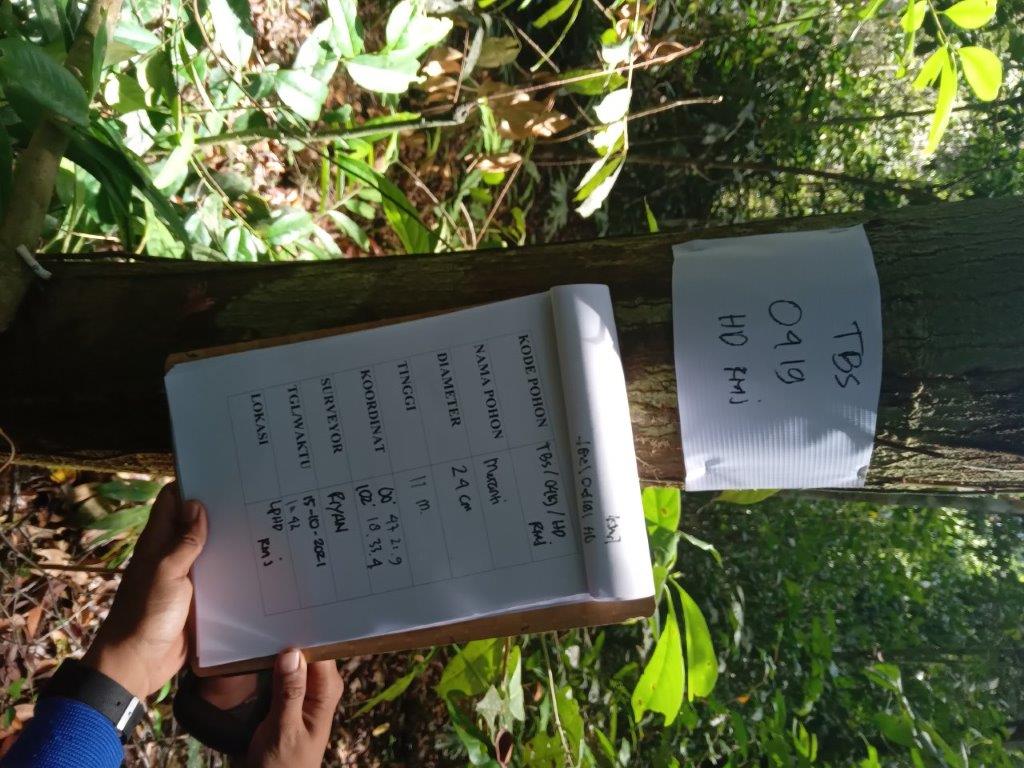 TBS
0919
HD RMJ
KODE POHON TBS/0919/HD
RMJ
NAMA POHON Meranti
DIAMETER 24 cm
TINGGI 11 m.
KOORDINAT 00 47.21.9
102 18.33.4
SURVEYOR RIYAN
TGL/WAKTU 15-10-2021
LOKASI LPHD RMJ